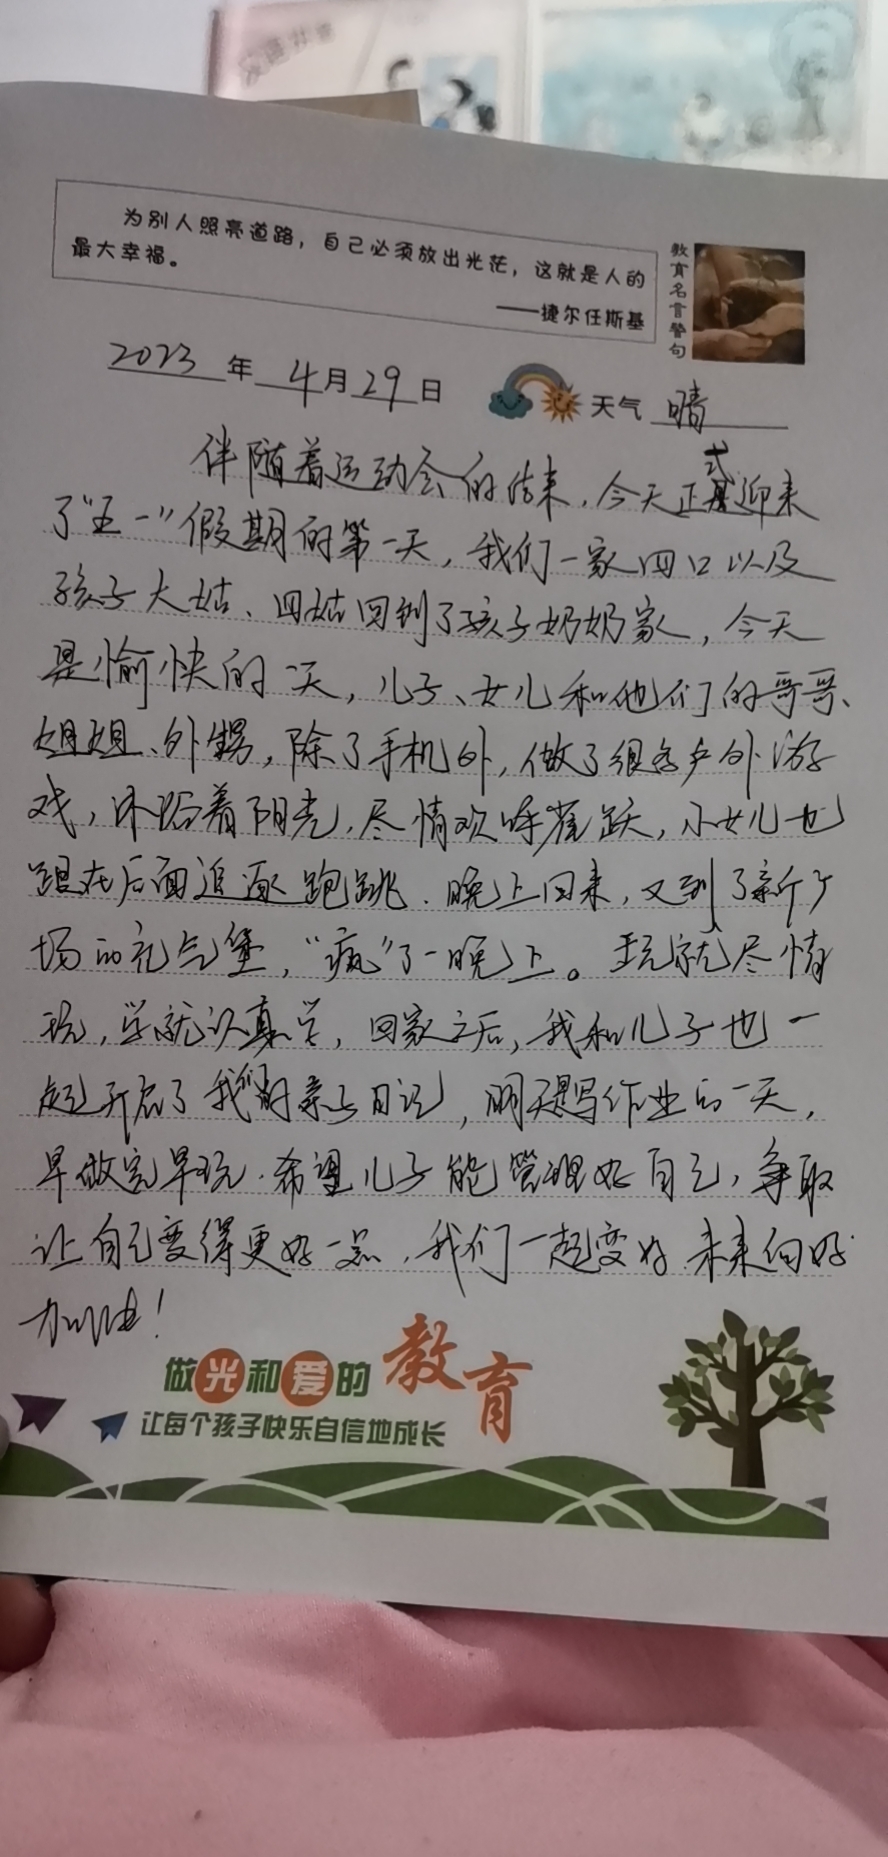 为别人照亮道路，自己必须放出光芒，这就是人的
最大幸福。
——捷尔任斯基
教育名言警句
2023年4月29日 天气 晴
伴随着运动会的结束，今天正式迎来
了“五一”假期的第一天，我们一家四口以及
孩子大姑、四姑回到了孩子奶奶家，今天
是愉快的一天，儿子、女儿和他们的哥哥、
姐姐、外甥，除了手机外，做了很多户外游
戏，沐浴着阳光，尽情欢呼雀跃，小女儿也
跟在后面追逐跑跳．晚上回来，又到了新广
场的充气堡，“疯”了一晚上。玩就尽情
玩，学就认真学，回家之后，我和儿子也一
起开启了我们的亲子日记，明天是写作业的一天，
早做完早玩．希望儿子能管理好自己，争取
让自己变得更好一点，我们一起变好．未来向好
加油！
做光和爱的教育
让每个孩子快乐自信地成长